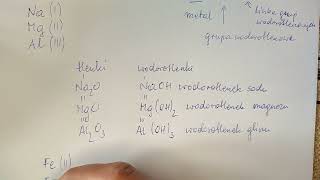 Na (I)
Mg (II)
Al (III)
liczba grup
wodorotlenowych
metal
grupa wodorotlenowa
tlenki wodorotlenki
Na₂O NaOH wodorotlenek sodu
MgO Mg(OH)₂ wodorotlenek magnezu
Al₂O₃ Al(OH)₃ wodorotlenek glinu
Fe (II)